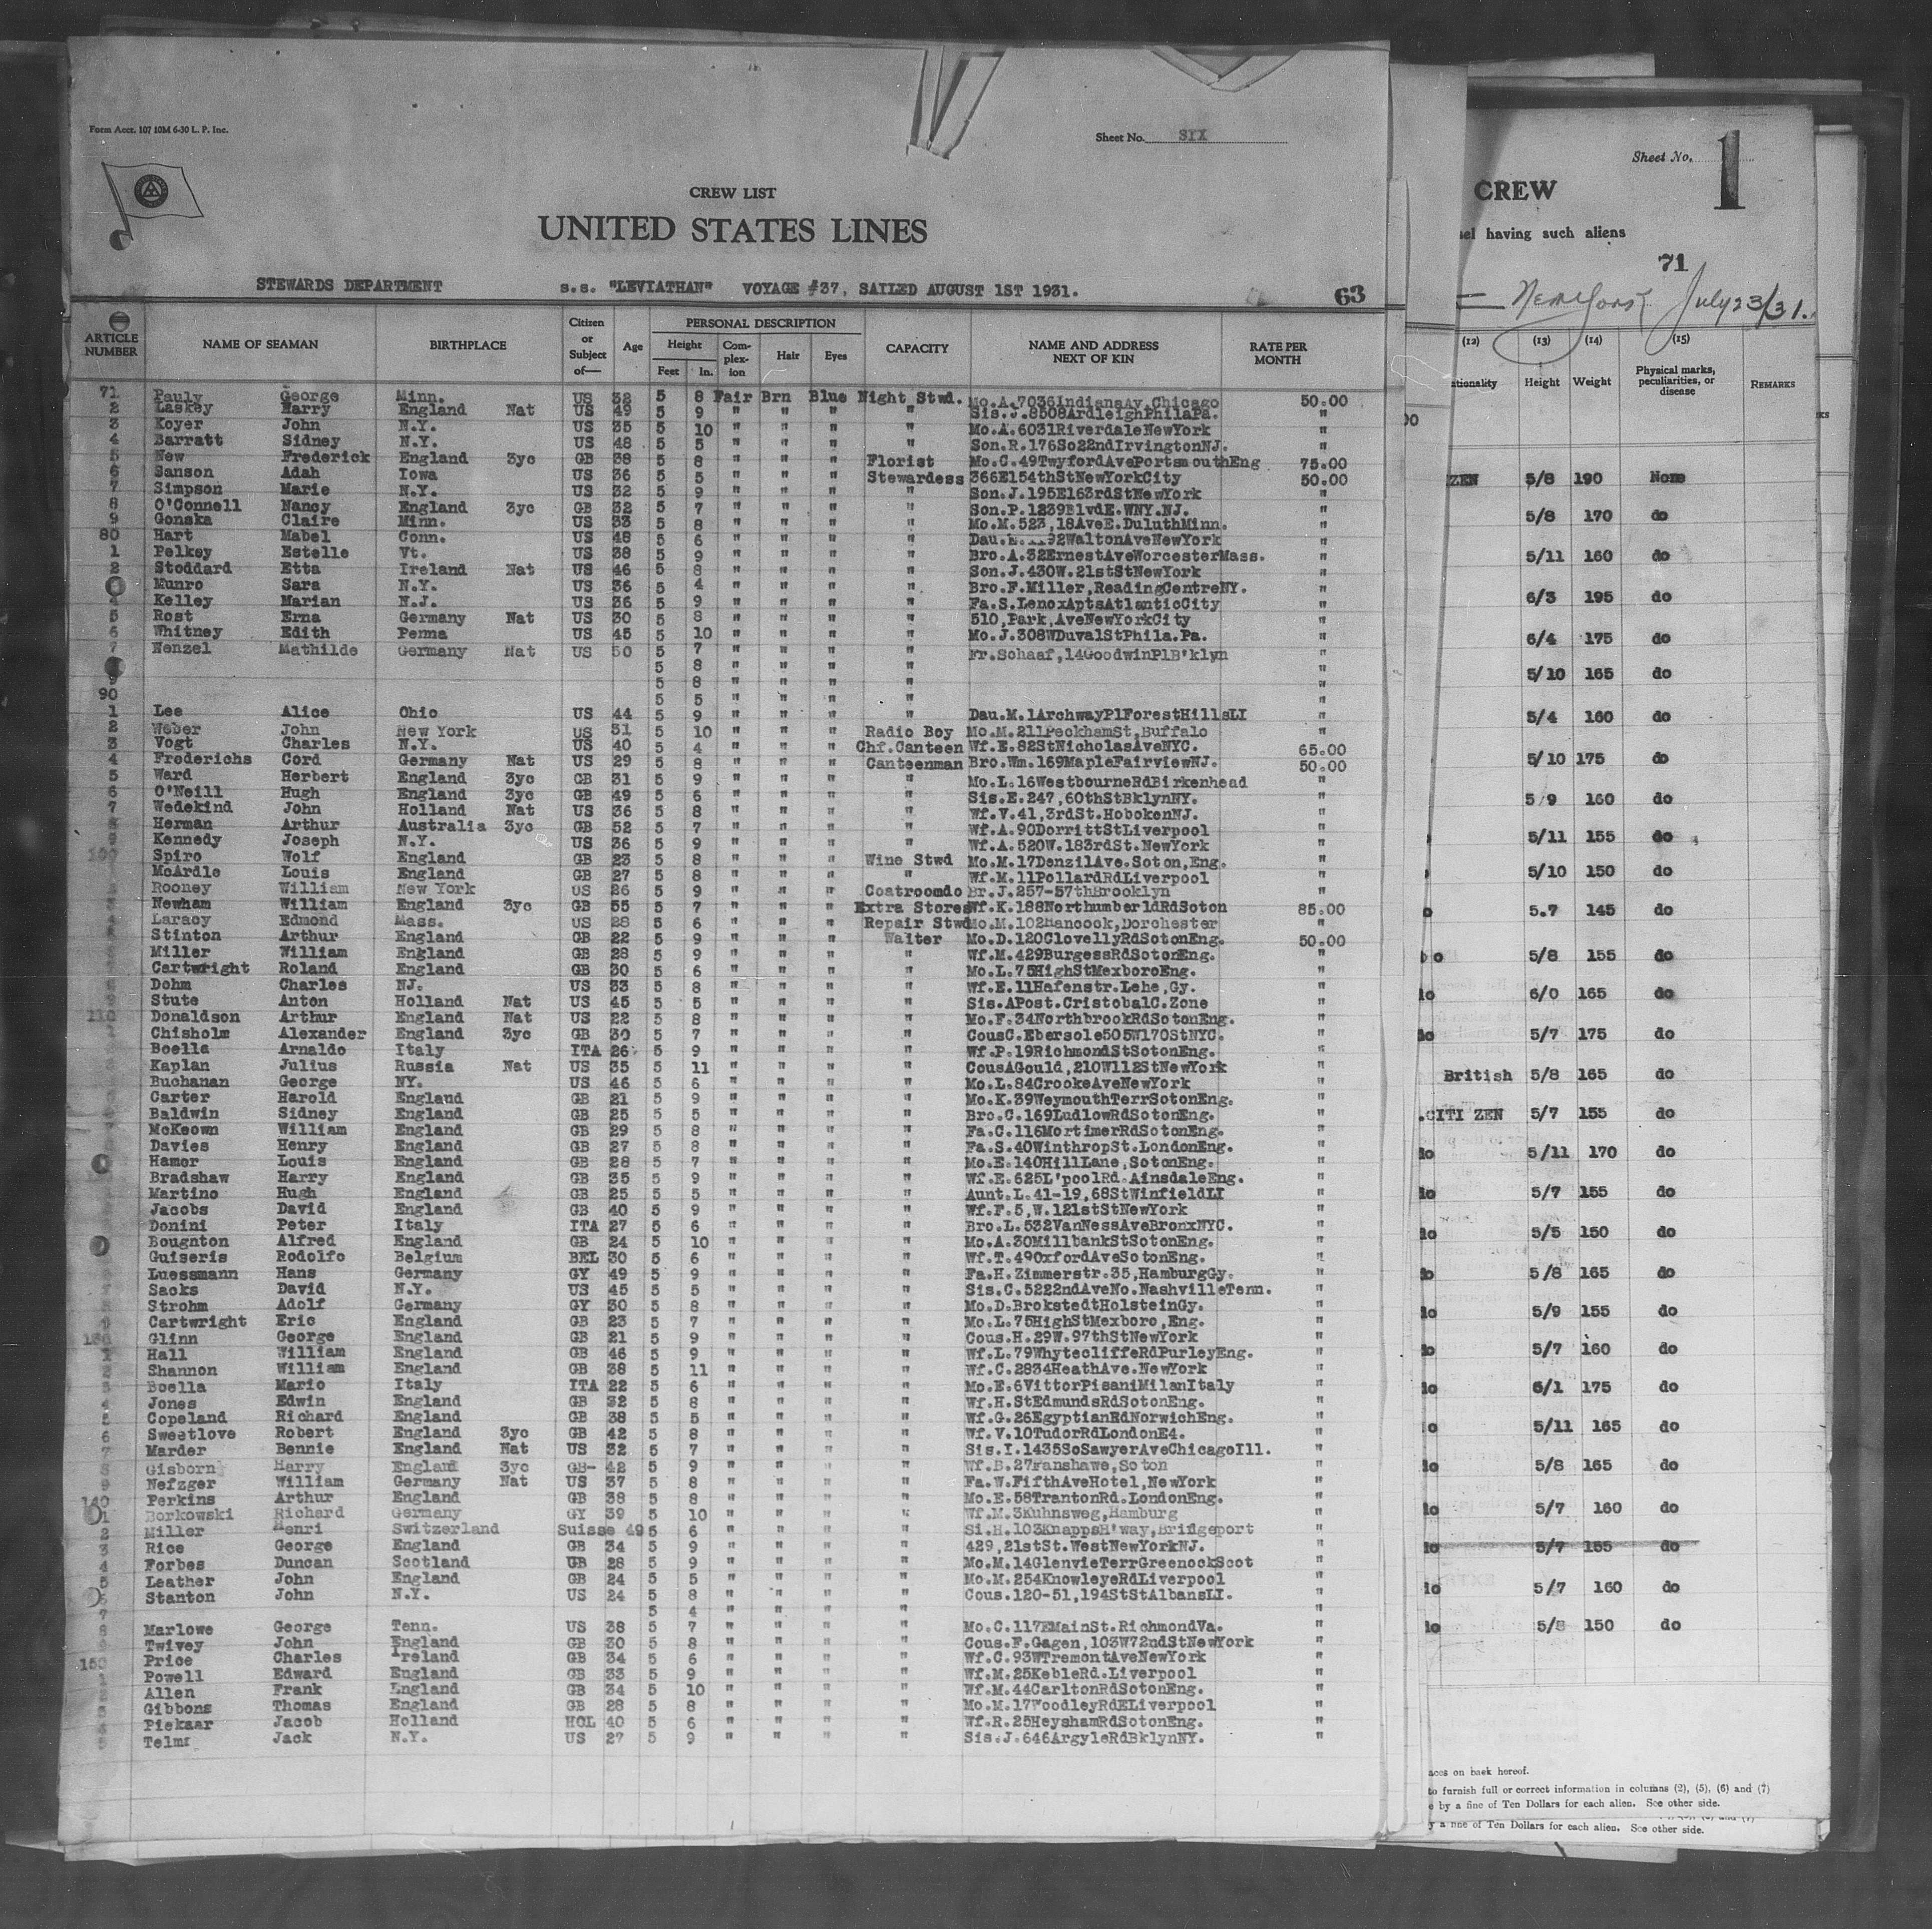 Form Acct. 107 10M 6-30 L. P. Inc.
Sheet No. SIX
CREW LIST
UNITED STATES LINES
STEWARDS DEPARTMENT s.s. "LEVIATHAN" VOYAGE #37, SAILED AUGUST 1ST 1931. 63
ARTICLE NUMBER NAME OF SEAMAN BIRTHPLACE Citizen or Subject of— Age PERSONAL DESCRIPTION Height Feet In. Complexion Hair Eyes CAPACITY NAME AND ADDRESS NEXT OF KIN RATE PER MONTH
71 Pauly George Minn. US 32 5 8 Fair Brn Blue Night Stwd. Mo.A.7036IndianaAv.Chicago 50.00
2 Laskey Harry England Nat US 49 5 9 " " " " Sis.J.8508ArdleighPhilaPa. "
3 Koyer John N.Y. US 35 5 10 " " " " Mo.A.6031RiverdaleNewYork "
4 Barratt Sidney N.Y. US 48 5 5 " " " " Son.R.176So22ndIrvingtonNJ. "
5 New Frederick England 3yc GB 38 5 8 " " " Florist Mo.C.49TwyfordAvePortsmouthEng 75.00
6 Sanson Adah Iowa US 36 5 5 " " " Stewardess 366E154thStNewYorkCity 50.00
7 Simpson Marie N.Y. US 32 5 9 " " " " Son.J.195E163rdStNewYork "
8 O'Connell Nancy England 3yc GB 32 5 7 " " " " Son.P.1239BlvdE.WNY.NJ. "
9 Gonska Claire Minn. US 33 5 8 " " " " Mo.M.523,18AveE.DuluthMinn. "
80 Hart Mabel Conn. US 48 5 6 " " " " 92WaltonAveNewYork "
1 Pelkey Estelle Vt. US 38 5 9 " " " " Bro.A.32ErnestAveWorcesterMass. "
2 Stoddard Etta Ireland Nat US 46 5 8 " " " " Son.J.430W.21stStNewYork "
Munro Sara N.Y. US 36 5 4 " " " " Bro.F.Miller,ReadingCentreNY. "
4 Kelley Marian N.J. US 36 5 9 " " " " Fa.S.LenoxAptsAtlanticCity "
5 Rost Erna Germany Nat US 30 5 8 " " " " 510,Park,AveNewYorkCity "
6 Whitney Edith Penna US 45 5 10 " " " " Mo.J.308WDuvalStPhila.Pa. "
7 Wenzel Mathilde Germany Nat US 50 5 7 " " " " Fr.Schaaf,14GoodwinPlB'klyn "
5 8 " " " " "
9 5 8 " " " " "
90 5 5 " " " " "
1 Lee Alice Ohio US 44 5 9 " " " " Dau.M.1ArchwayPlForestHillsLI "
2 Weber John New York US 31 5 10 " " " Radio Boy Mo.M.211PeckhamSt,Buffalo "
3 Vogt Charles N.Y. US 40 5 4 " " " Chf.Canteen Wf.E.82StNicholasAveNYC. 65.00
4 Frederichs Cord Germany Nat US 29 5 8 " " " Canteenman Bro.Wm.169MapleFairviewNJ. 50.00
5 Ward Herbert England 3yc GB 31 5 9 " " " " Mo.L.16WestbourneRdBirkenhead "
6 O'Neill Hugh England 3yc GB 49 5 6 " " " " Sis.E.247,60thStBklynNY. "
7 Wedekind John Holland Nat US 36 5 8 " " " " Wf.V.41,3rdSt.HobokenNJ. "
8 Herman Arthur Australia 3yc GB 52 5 7 " " " " Wf.A.90DorrittStLiverpool "
9 Kennedy Joseph N.Y. US 36 5 9 " " " " Wf.A.520W.183rdSt.NewYork "
100 Spiro Wolf England GB 23 5 8 " " " Wine Stwd Mo.M.17DenzilAve.Soton,Eng. "
McArdle Louis England GB 27 5 8 " " " " Wf.M.11PollardRdLiverpool "
Rooney William New York US 26 5 9 " " " Coatroomdo Br.J.257-57thBrooklyn "
Newham William England 3yc GB 55 5 7 " " " Extra Stores Wf.K.188NorthumberldRdSoton 85.00
Laracy Edmond Mass. US 28 5 6 " " " Repair Stwd Mo.M.102Hancock,Dorchester "
Stinton Arthur England GB 22 5 9 " " " Waiter Mo.D.120ClovellyRdSotonEng. 50.00
Miller William England GB 28 5 9 " " " " Wf.M.429BurgessRdSotonEng. "
Cartwright Roland England GB 30 5 6 " " " " Mo.L.75HighStMexboroEng. "
Dohm Charles NJ. US 33 5 8 " " " " Wf.E.11Hafenstr.Lehe,Gy. "
Stute Anton Holland Nat US 45 5 5 " " " " Sis.APost.CristobalC.Zone "
110 Donaldson Arthur England Nat US 22 5 8 " " " " Mo.F.34NorthbrookRdSotonEng. "
Chisholm Alexander England 3yc GB 30 5 7 " " " " CousC.Ebersole505W170StNYC. "
Boella Arnaldo Italy ITA 26 5 9 " " " " Wf.P.19RichmondStSotonEng. "
Kaplan Julius Russia Nat US 35 5 11 " " " " CousAGould,210W112StNewYork "
Buchanan George NY. US 46 5 6 " " " " Mo.L.84CrookeAveNewYork "
Carter Harold England GB 21 5 9 " " " " Mo.K.39WeymouthTerrSotonEng. "
Baldwin Sidney England GB 25 5 5 " " " " Bro.C.169LudlowRdSotonEng. "
McKeown William England GB 29 5 8 " " " " Fa.C.116MortimerRdSotonEng. "
Davies Henry England GB 27 5 8 " " " " Fa.S.40WinthropSt.LondonEng. "
Hamer Louis England GB 28 5 7 " " " " Mo.E.140HillLane,SotonEng. "
Bradshaw Harry England GB 35 5 9 " " " " Wf.E.625L'poolRd.AinsdaleEng. "
Martino Hugh England GB 25 5 5 " " " " Aunt.L.41-19,68StWinfieldLI "
Jacobs David England GB 40 5 9 " " " " Wf.F.5,W.121stStNewYork "
Donini Peter Italy ITA 27 5 6 " " " " Bro.L.532VanNessAveBronxNYC. "
Boughton Alfred England GB 24 5 10 " " " " Mo.A.30MillbankStSotonEng. "
Guiseris Rodolfo Belgium BEL 30 5 6 " " " " Wf.T.49OxfordAveSotonEng. "
Luessmann Hans Germany GY 49 5 9 " " " " Fa.H.Zimmerstr.35,HamburgGy. "
Sacks David N.Y. US 45 5 5 " " " " Sis.C.5222ndAveNo.NashvilleTenn. "
Strohm Adolf Germany GY 30 5 8 " " " " Mo.D.BrokstedtHolsteinGy. "
Cartwright Eric England GB 23 5 7 " " " " Mo.L.75HighStMexboro,Eng. "
130 Glinn George England GB 21 5 9 " " " " Cous.H.29W.97thStNewYork "
1 Hall William England GB 46 5 9 " " " " Wf.L.79WhytecliffeRdPurleyEng. "
2 Shannon William England GB 38 5 11 " " " " Wf.C.2834HeathAve.NewYork "
3 Boella Mario Italy ITA 22 5 6 " " " " Mo.E.6VittorPisaniMilanItaly "
4 Jones Edwin England GB 32 5 8 " " " " Wf.H.StEdmundsRdSotonEng. "
5 Copeland Richard England GB 38 5 5 " " " " Wf.G.26EgyptianRdNorwichEng. "
6 Sweetlove Robert England 3yc GB 42 5 8 " " " " Wf.V.10TudorRdLondonE4. "
7 Marder Bennie England Nat US 32 5 7 " " " " Sis.I.1435SoSawyerAveChicagoIll. "
8 Gisborn Harry England 3yc GB- 42 5 9 " " " " Wf.B.27Fanshawe,Soton "
9 Nefzger William Germany Nat US 37 5 8 " " " " Fa.W.FifthAveHotel,NewYork "
140 Perkins Arthur England GB 38 5 8 " " " " Mo.E.58TrantonRd.LondonEng. "
1 Borkowski Richard Germany GY 39 5 10 " " " " Wf.M.3Kuhnsweg,Hamburg "
2 Miller Henri Switzerland Suisse 49 5 6 " " " " Si.H.103KnappsH'way,Bridgeport "
3 Rice George England GB 34 5 9 " " " " 429,21stSt.WestNewYorkNJ. "
4 Forbes Duncan Scotland GB 28 5 9 " " " " Mo.M.14GlenvieTerrGreenockScot "
5 Leather John England GB 24 5 5 " " " " Mo.M.254KnowleyeRdLiverpool "
6 Stanton John N.Y. US 24 5 8 " " " " Cous.120-51,194StStAlbansLI. "
7 5 4 " " " " "
8 Marlowe George Tenn. US 38 5 7 " " " " Mo.C.117EMainSt.RichmondVa. "
9 Twivey John England GB 30 5 8 " " " " Cous.F.Gagen,103W72ndStNewYork "
150 Price Charles Ireland GB 34 5 6 " " " " Wf.C.93WTremontAveNewYork "
Powell Edward England GB 33 5 9 " " " " Wf.M.25KebleRd.Liverpool "
Allen Frank England GB 34 5 10 " " " " Wf.M.44CarltonRdSotonEng. "
Gibbons Thomas England GB 28 5 8 " " " " Mo.M.17WoodleyRdELiverpool "
Piekaar Jacob Holland HOL 40 5 6 " " " " Wf.R.25HeyshamRdSotonEng. "
Jack N.Y. US 27 5 9 " " " " Sis.J.646ArgyleRdBklynNY. "
Sheet No. 1
CREW
sel having such aliens
71
New York July 23/31.
(12) (13) (14) (15)
ationality Height Weight Physical marks, peculiarities, or disease REMARKS
ZEN 5/8 190 None
5/8 170 do
5/11 160 do
6/3 195 do
6/4 175 do
5/10 165 do
5/4 160 do
5/10 175 do
5/9 160 do
5/11 155 do
5/10 150 do
5.7 145 do
5/8 155 do
do 6/0 165 do
do 5/7 175 do
British 5/8 165 do
.CITI ZEN 5/7 155 do
do 5/11 170 do
do 5/7 155 do
do 5/5 150 do
do 5/8 165 do
do 5/9 155 do
do 5/7 160 do
do 6/1 175 do
do 5/11 165 do
do 5/8 165 do
do 5/7 160 do
do 5/7 155 do
do 5/7 160 do
do 5/8 150 do
aces on back hereof.
to furnish full or correct information in columns (2), (5), (6) and (7)
e by a fine of Ten Dollars for each alien. See other side.
y a fine of Ten Dollars for each alien. See other side.